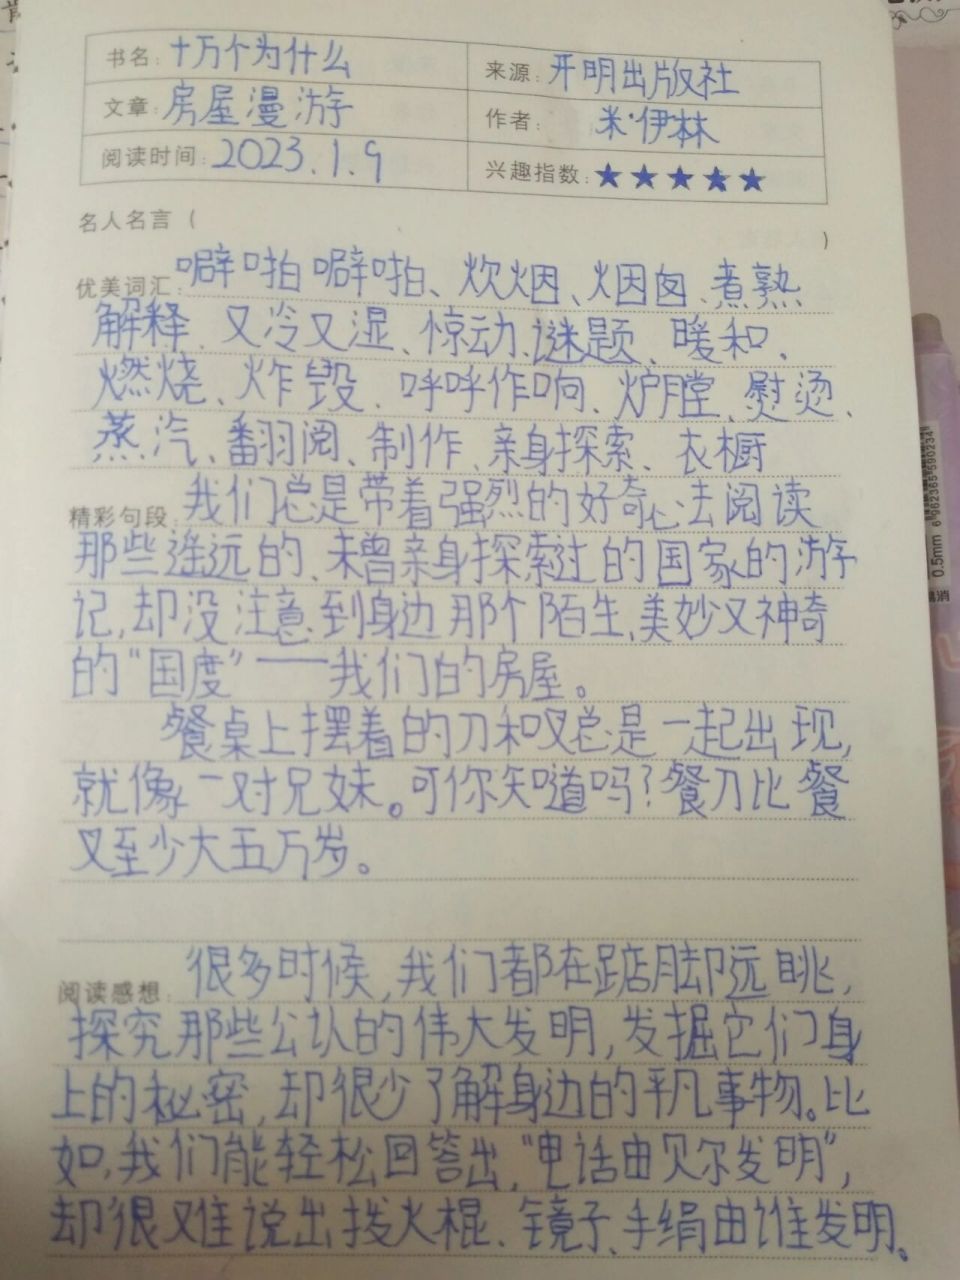 书名:十万个为什么 来源:开明出版社
文章:房屋漫游 作者:米·伊林
阅读时间:2023.1.9 兴趣指数:★★★★★
名人名言( )
优美词汇:噼啪噼啪、炊烟、烟囱、煮熟
解释、又冷又湿、惊动、谜题、暖和、
燃烧、炸毁、呼呼作响、炉膛、熨烫、
蒸汽、翻阅、制作、亲身探索、衣橱
精彩句段:我们总是带着强烈的好奇心去阅读
那些遥远的、未曾亲身探索过的国家的游
记,却没注意到身边那个陌生,美妙又神奇
的“国度”——我们的房屋。
餐桌上摆着的刀和叉总是一起出现,
就像一对兄妹。可你知道吗?餐刀比餐
叉至少大五万岁。
阅读感想:很多时候,我们都在踮脚远眺,
探究那些公认的伟大发明,发掘它们身
上的秘密,却很少了解身边的平凡事物。比
如,我们能轻松回答出“电话由贝尔发明”,
却很难说出拨火棍、镜子、手绢由谁发明。
0.5mm
6962365590234